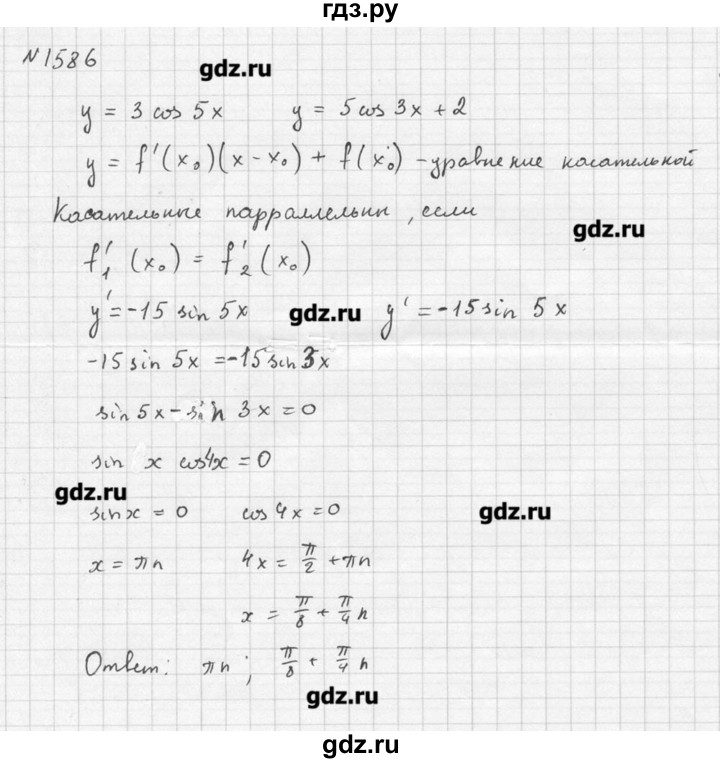 гдз.ру
№1586
gdz.ru
y = 3 cos 5x y = 5cos 3x + 2
y = f'(x₀)(x - x₀) + f(x₀) - уравнение касательной
Касательные парраллельны, если
gdz.ru
f'₁ (x₀) = f'₂ (x₀)
y' = -15 sin 5x gdz.ru y' = -15 sin 5x
-15 sin 5x = -15 sin 3x
sin 5x - sin 3x = 0
sin x cos 4x = 0
gdz.ru
sin x = 0 cos 4x = 0 gdz.ru
x = πn 4x = π/2 + πn
x = π/8 + π/4 n
Ответ: πn; π/8 + π/4 n
gdz.ru
gdz.ru